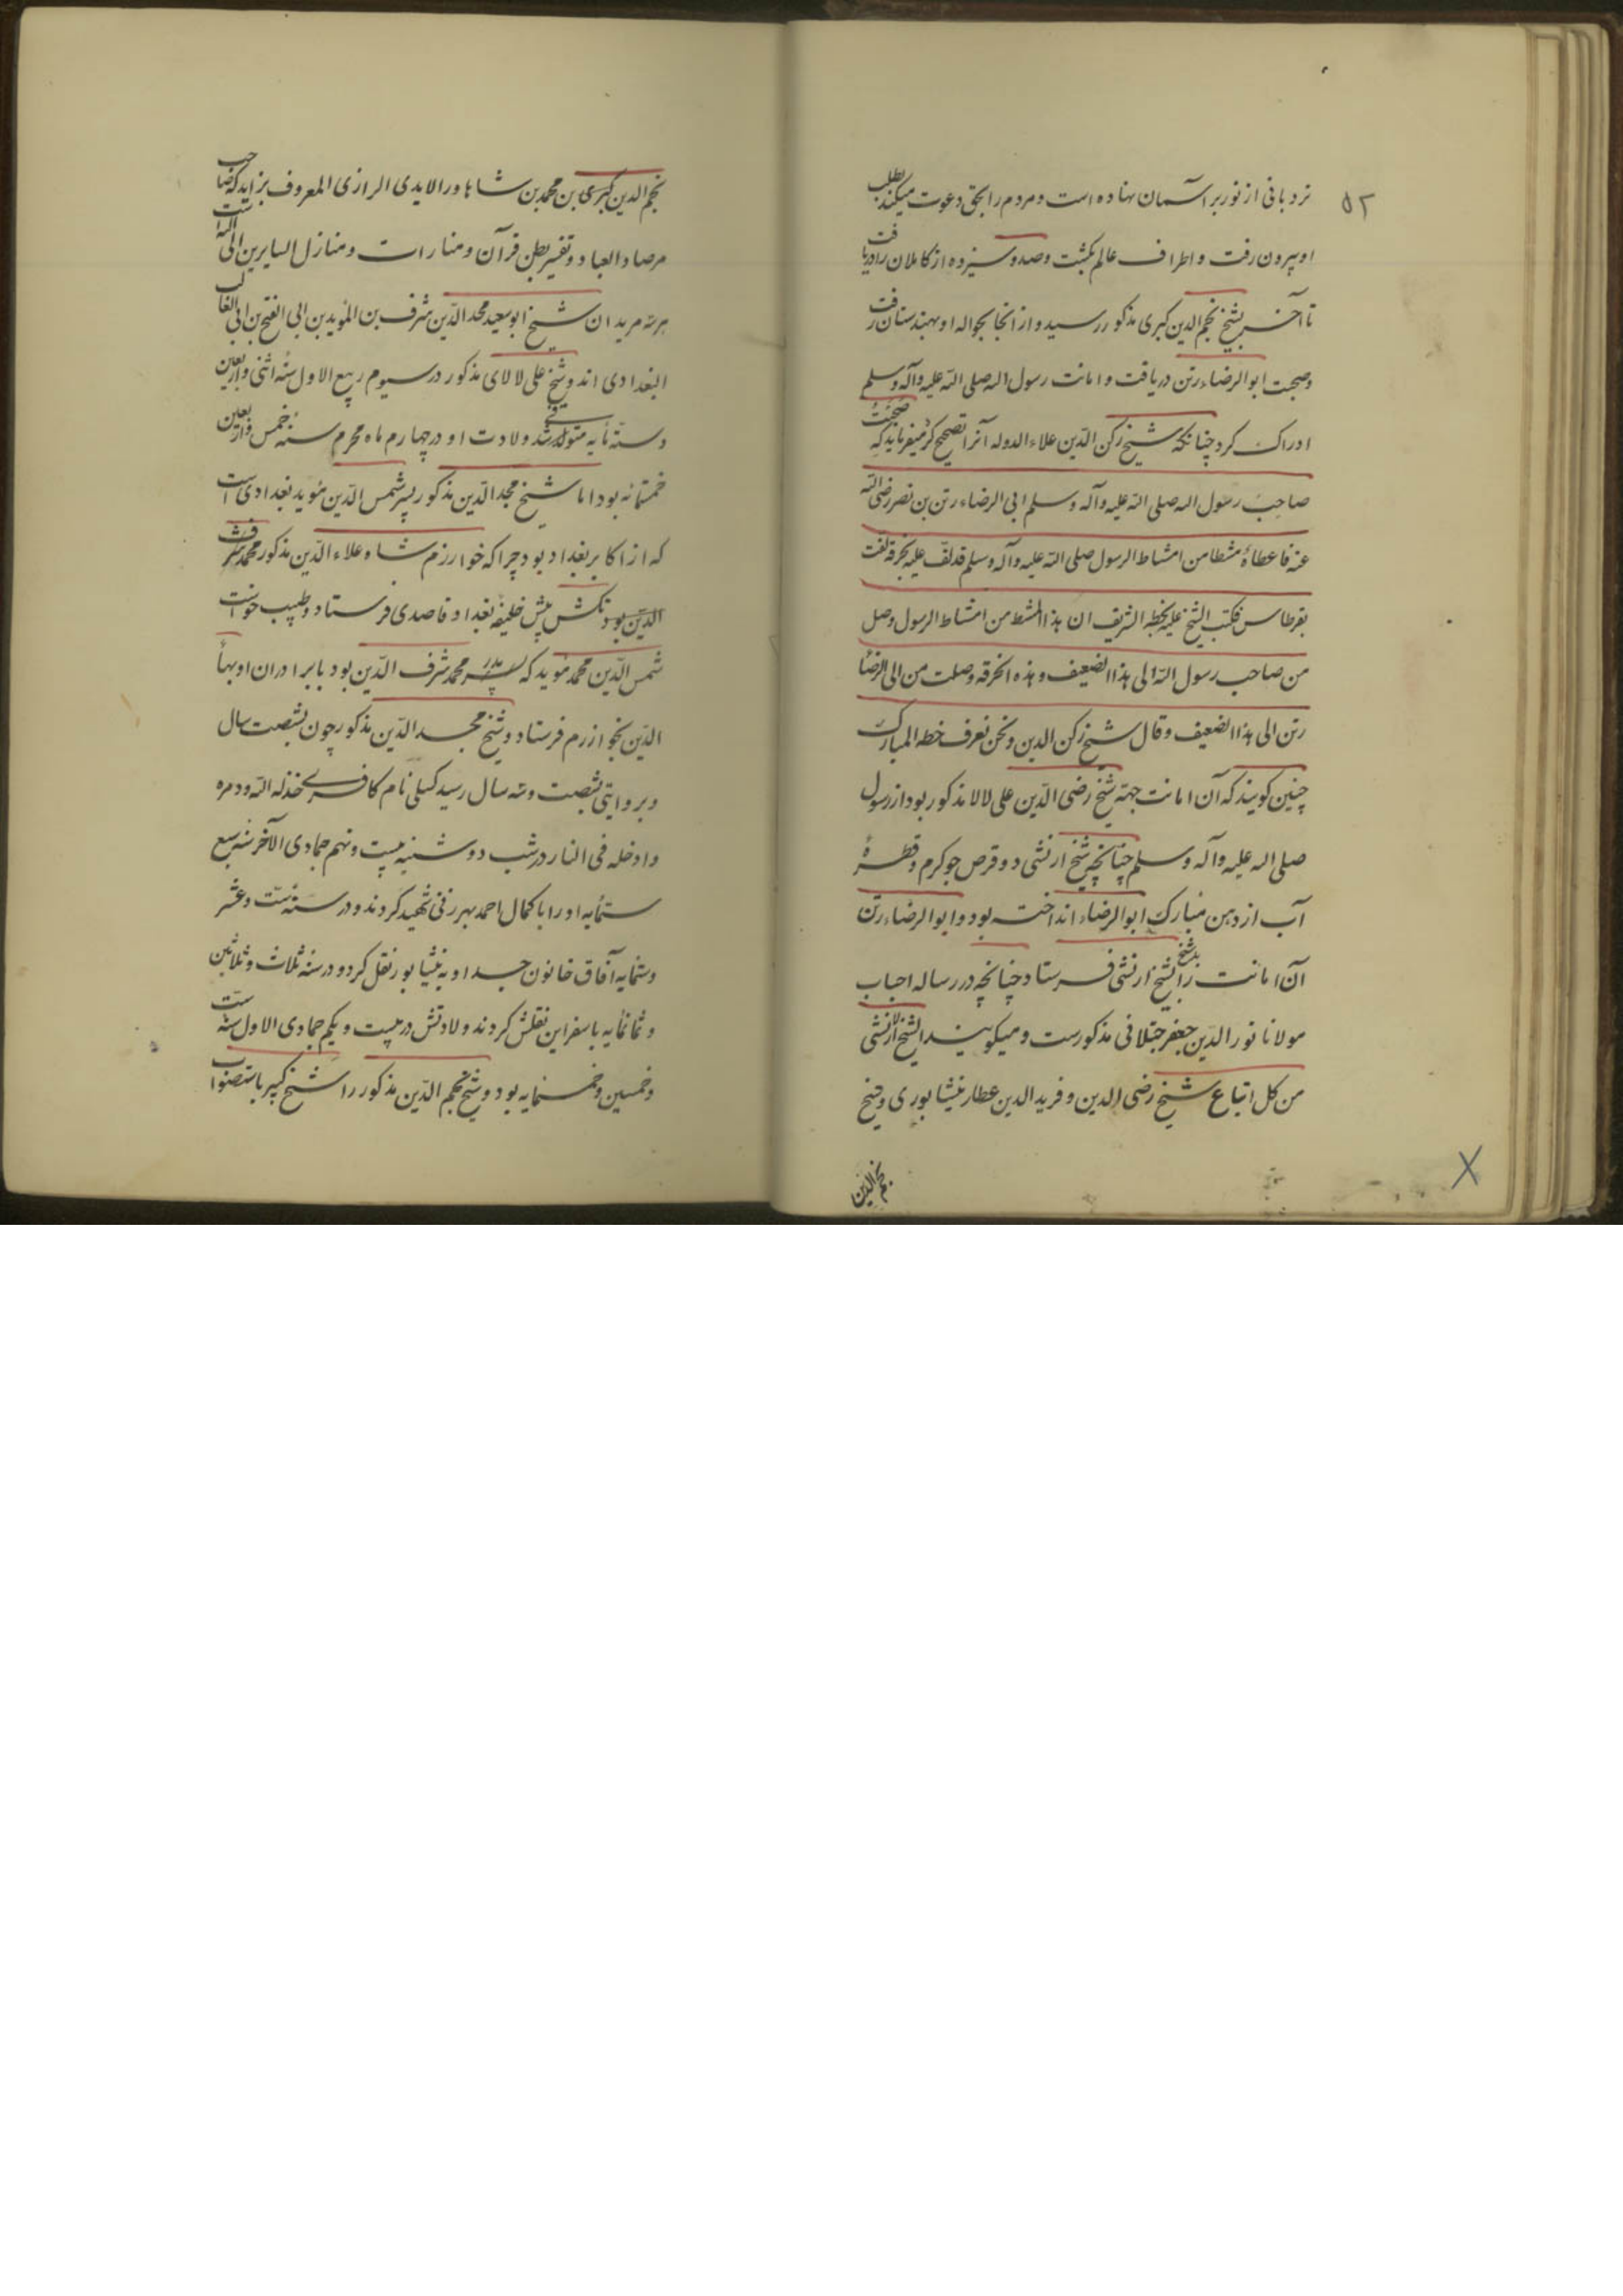 ۵۲
نردبانی از نور بر آسمان نهاده است و مردم را بحق دعوت میکند بطلب
او بیرون رفت و اطراف عالم بگشت و صد و سیزده از کاملان را دریافت
تا آخر بشیخ نجم الدین کبری مذکور رسید و از انجا بحواله او بهندستان رفت
و صحبت ابو الرضاء رتن دریافت و امانت رسول اله صلی الله علیه وآله وسلم
ادراک کرد چنانکه شیخ رکن الدین علاء الدوله آنرا تصحیح کرد میفرماید که صحبت
صاحب رسول اله صلی الله علیه وآله وسلم ابی الرضاء رتن بن نصر رضی الله
عنه فاعطاه مشطا من امشاط الرسول صلی الله علیه وآله وسلم قد لف علیه بخرقة لفت
بقرطاس فکتب الشیخ علیه بخطه الشریف ان هذا المشط من امشاط الرسول وصل
من صاحب رسول الله الی هذا الضعیف و هذه الخرقة وصلت من ابی الرضا
رتن الی هذا الضعیف و قال شیخ رکن الدین و نحن نعرف خطه المبارک
چنین گویند که آن امانت جهة شیخ رضی الدین علی لالا مذکور بود از رسول
صلی اله علیه وآله وسلم چنانچه شیخ ارنشی دو قرص جو کرم و قطرهٔ
آب از دهن مبارک ابو الرضاء انداخته بود و ابو الرضاء رتن
آن امانت را بشیخ ارنشی فرستاد چنانچه در رساله احباب
مولانا نور الدین جعفر مذکورست و میگویند الشیخ ارنشی
من کل اتباع شیخ رضی الدین و فرید الدین عطار نیشابوری و شیخ
نجم الدین
نجم الدین کبری بن محمد بن شاهاور الایدی الرازی المعروف بزاید که صاحب
مرصاد العباد و تفسیر بطن قرآن و منارات و منازل السایرین الی الله است
هر سه مریدان شیخ ابو سعید مجد الدین شرف بن المؤید بن ابی الفتح بن ابی الغالب
البغدادی اند و شیخ علی لالای مذکور در سیوم ربیع الاول سنه اثنی و اربعین
و ستمایه متوفی شد ولادت او در چهارم ماه محرم سنه خمس و اربعین
خمسمائه بود اما شیخ مجد الدین مذکور پسر شمس الدین مؤید بغدادی است
که از اکابر بغداد بود چرا که خوارزم شاه علاء الدین مذکور محمد شرف
الدین بود تکش پیش خلیفه بغداد قاصدی فرستاد و طبیب خواست
شمس الدین محمد مؤید که پدر محمد شرف الدین بود با برادران او بها
الدین بخوارزم فرستاد و شیخ مجد الدین مذکور چون بشصت سال
و بروایتی بشصت و سه سال رسید کبلی نام کافری خذله الله و دمره
و ادخله فی النار در شب دوشنبه بیست و نهم جمادی الآخر سنه سبع
ستمایه او را با کمال احمد شهید کردند و در سنه ست و عشر
و ستمایه آفاق خاتون جسد او به نیشابور نقل کرد و در سنه ثلاث و ثلاثین
و ثمانمایه باسفراین نقلش کردند ولادتش در بیست و یکم جمادی الاول سنه ست
و خمسین و خمسمایه بود و شیخ نجم الدین مذکور را شیخ کبیر باستصواب